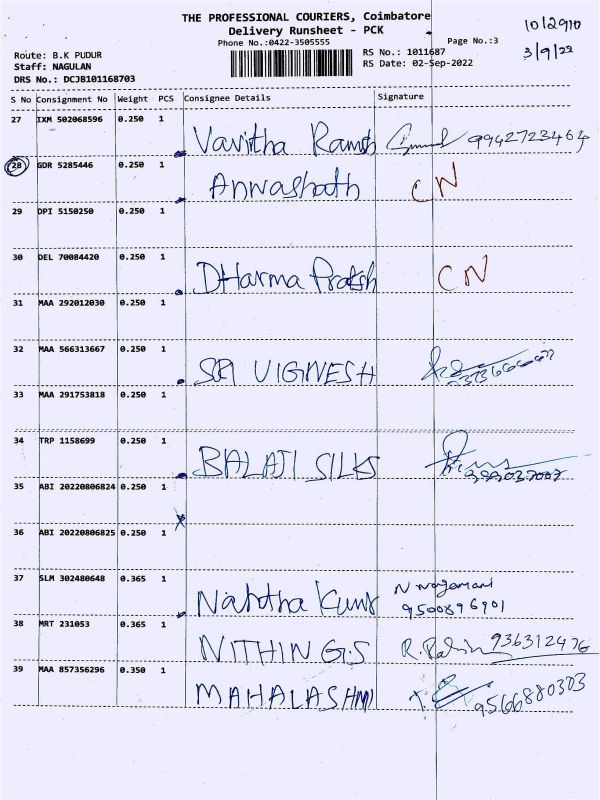 THE PROFESSIONAL COURIERS, Coimbatore
Delivery Runsheet - PCK
Phone No.:0422-3505555
Page No.:3
10/2910
3/9/22
Route: B.K PUDUR
Staff: NAGULAN
DRS No.: DCJB101168703
RS No.: 1011687
RS Date: 02-Sep-2022
S No Consignment No Weight PCS Consignee Details Signature
27 IXM 502068596 0.250 1 Vavitha Ramsh 9942723464
28 GDR 5285446 0.250 1 Anwashath CN
29 DPI 5150250 0.250 1
30 DEL 70084420 0.250 1 DHarma Pratksh CN
31 MAA 292012030 0.250 1
32 MAA 566313667 0.250 1 SRI VIGNESH
33 MAA 291753818 0.250 1
34 TRP 1158699 0.250 1 BALAJI SILKS
35 ABI 20220806824 0.250 1
36 ABI 20220806825 0.250 1
37 SLM 302480648 0.365 1 N nagamani
9500896901
38 MRT 231053 0.365 1 NITHIN G.S 936312476
39 MAA 857356296 0.350 1 MAHALASHMI 9566880303